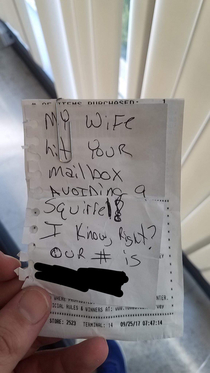 # OF ITEMS PURCHASED:
My WiFE
hit YOUR
mailbox
AVOIDING a
Squirrel!
I Know Right?
OUR # IS
STORE: 2523 TERMINAL: 14 09/25/17 07:42:14